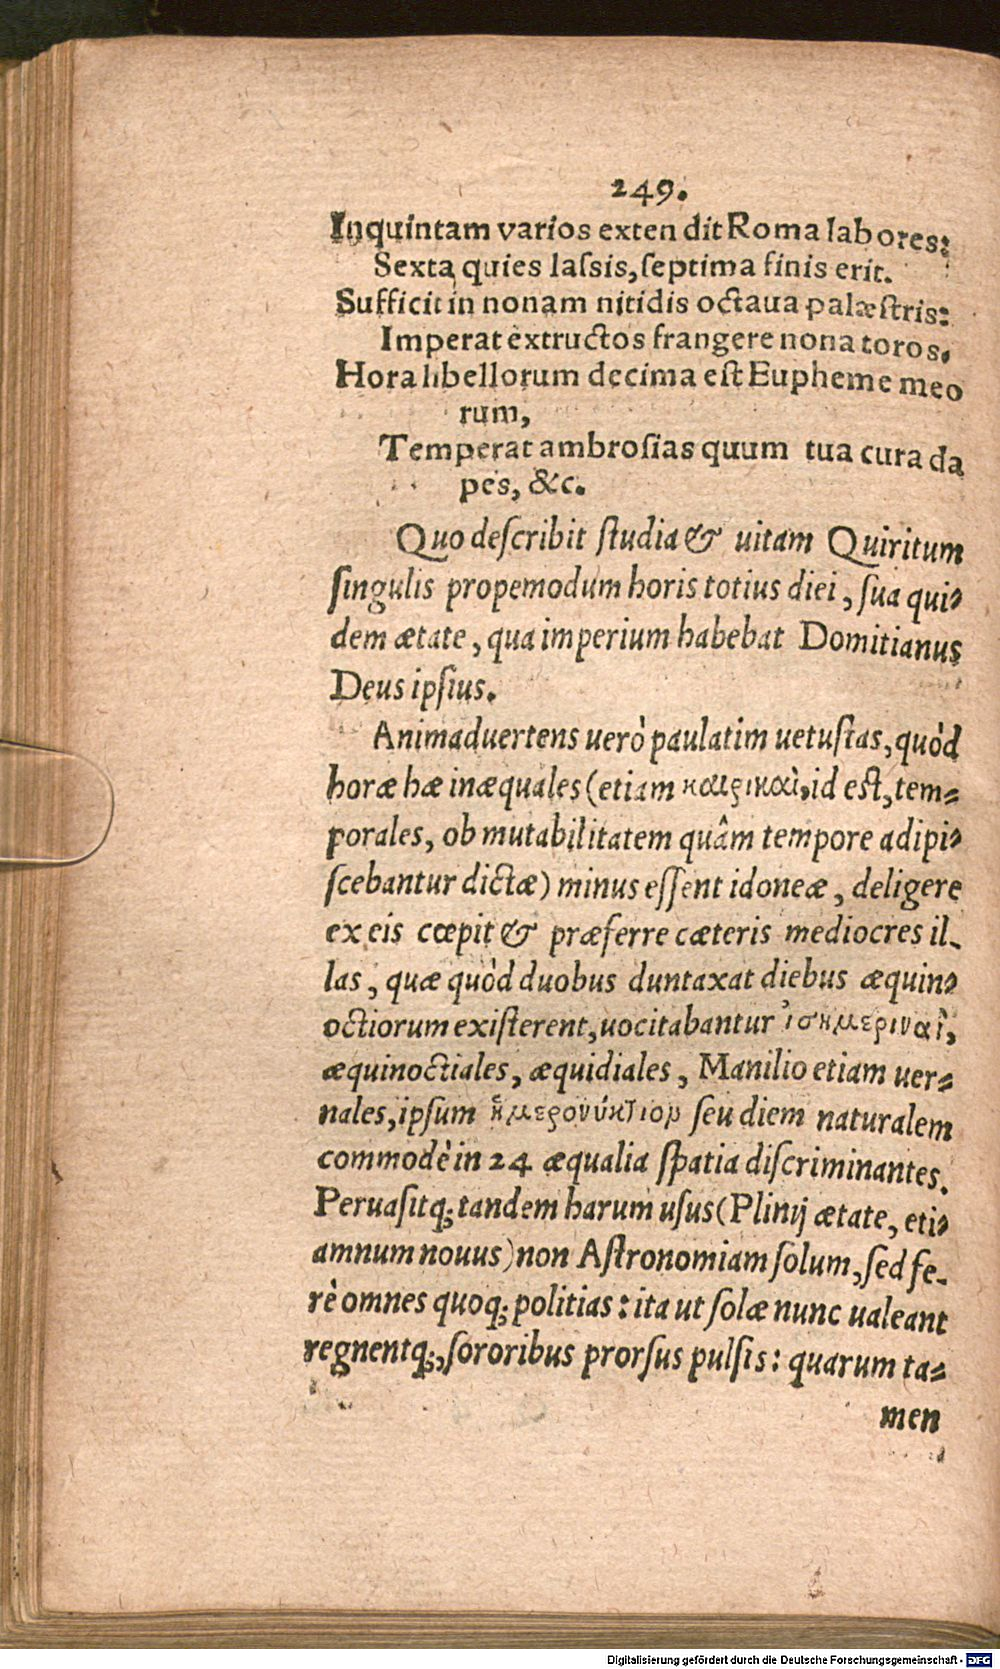 249.
Inquintam varios exten dit Roma labores:
Sexta quies lassis, septima finis erit.
Sufficit in nonam nitidis octaua palæstris:
Imperat extructos frangere nona toros.
Hora libellorum decima est Eupheme meo
rum,
Temperat ambrosias quum tua cura da
pes, &c.
Quo describit studia & uitam Quiritum
singulis propemodum horis totius diei, sua qui-
dem ætate, qua imperium habebat Domitianus
Deus ipsius.
Animaduertens uerò paulatim uetustas, quòd
horæ hæ inæquales (etiam καιρικαὶ, id est, tem-
porales, ob mutabilitatem quâm tempore adipi-
scebantur dictæ) minus essent idoneæ, deligere
ex eis cœpit & præferre cæteris mediocres il-
las, quæ quòd duobus duntaxat diebus æquin-
octiorum existerent, uocitabantur ἰσημεριναὶ,
æquinoctiales, æquidiales, Manilio etiam uer-
nales, ipsum ἡμερονύκτιον seu diem naturalem
commodè in 24 æqualia spatia discriminantes.
Peruasitq; tandem harum usus (Plinij ætate, eti-
amnum nouus) non Astronomiam solum, sed fe-
rè omnes quoq; politias: ita ut solæ nunc ualeant
regnentq;, sororibus prorsus pulsis: quarum ta-
men
Digitalisierung gefördert durch die Deutsche Forschungsgemeinschaft - DFG